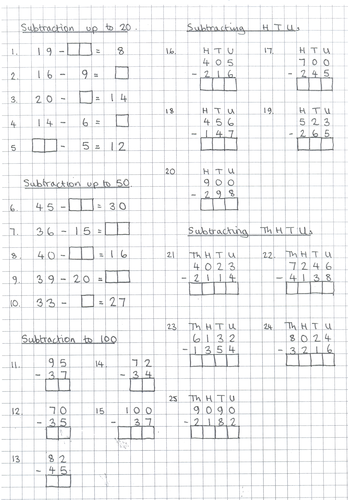 Subtraction up to 20
1. 19 - □□ = 8
2. 16 - 9 = □
3. 20 - □ = 14
4. 14 - 6 = □
5 □□ - 5 = 12
Subtraction up to 50
6. 45 - □□ = 30
7. 36 - 15 = □□
8. 40 - □□ = 16
9. 39 - 20 = □□
10. 33 - □ = 27
Subtraction to 100
11. 95
- 37
14. 72
- 34
12 70
- 35
15 100
- 37
13 82
- 45
Subtracting HTUs
16. H T U
405
- 216
17. H T U
700
- 245
18 H T U
456
- 147
19. H T U
523
- 265
20 H T U
900
- 298
Subtracting Th H T Us
21 Th H T U
4023
- 2114
22. Th H T U
7246
- 4138
23 Th H T U
6132
- 1354
24 Th H T U
8024
- 3216
25 Th H T U
9090
- 2182